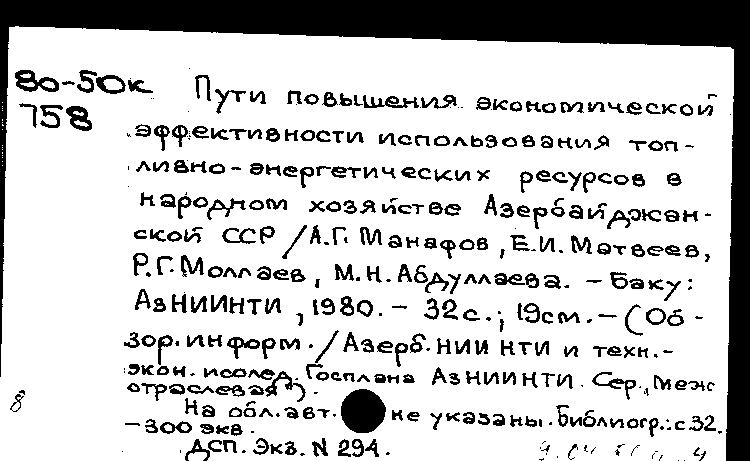 80-50к Пути повышения экономической
758 эффективности использования топ-
ливно-энергетических ресурсов в
народном хозяйстве Азербайджан-
ской ССР / А.Г. Манафов, Е.И. Матвеев,
Р.Г. Моллаев, М.Н. Абдуллаева. – Баку:
АзНИИНТИ, 1980. – 32 с.; 19см. – (Об-
зор. информ. / Азерб. НИИ НТИ и техн.-
экон. исслед. Госплана АзНИИНТИ. Сер. „Меж
отраслевая").
8 На обл. авт. не указаны. Библиогр.: с.32.
– 300 экз.
ДСП. Экз. N 294.